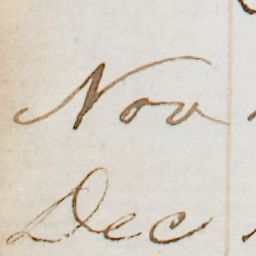 Nov
Dec